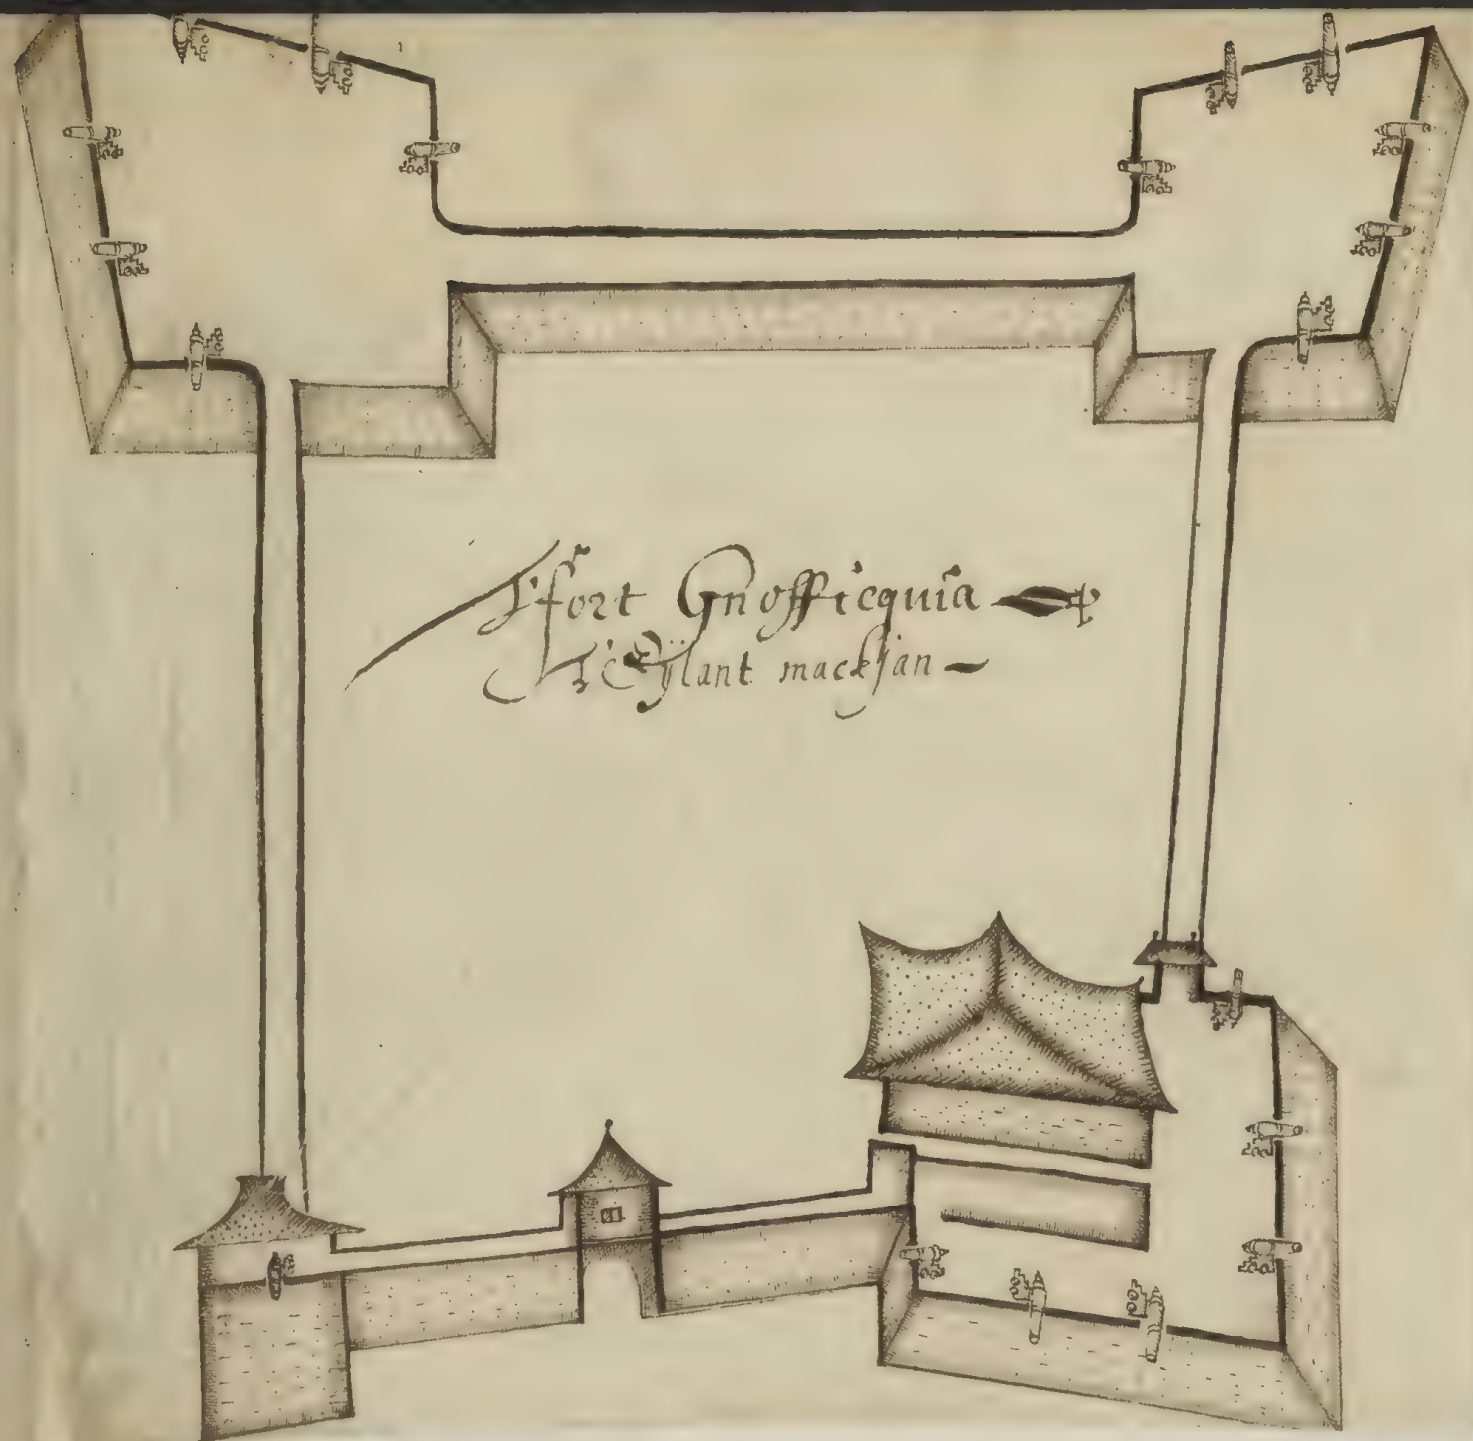 T'fort Gnofficquia
T'Eÿlant mackjan